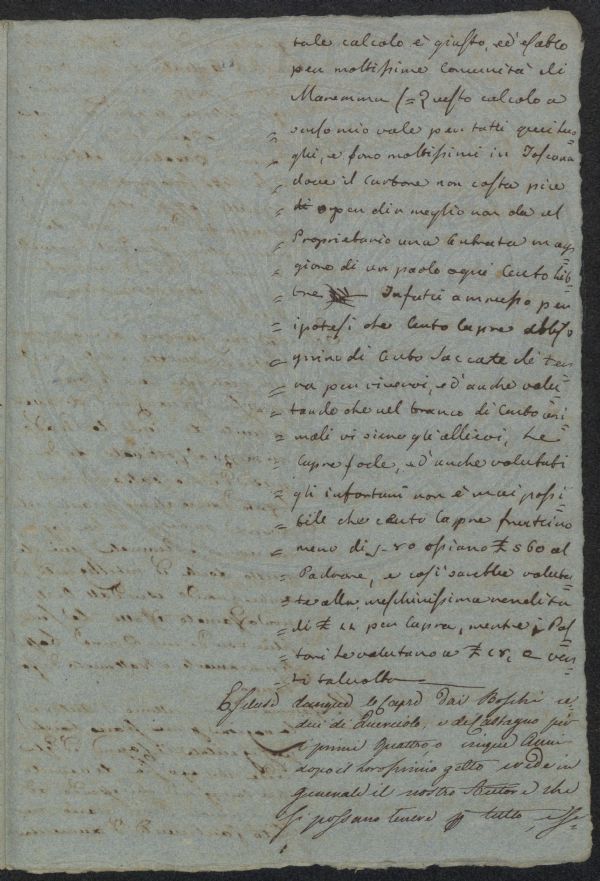 tale calcolo è giusto, ed esatto
per moltissime Comunità di
Maremma (= Questo calcolo a
= senso mio vale per tutti quei luo=
= ghi, e sono moltissimi in Toscana
= dove il Carbone non costa più
= di o per dir meglio non da al
= Proprietario una Entrata mag=
= giore di un paolo ogni Cento lib=
= bre Infatti ammesso per
= ipotesi che Cento Capre abbiso
= gnino di Cento Saccate di ter
= ra per vivervi, ed anche valu=
= tando che nel branco di Cento ani=
= mali vi siano gli allievi, Le
= Capre sode, ed anche valutati
= gli infortuni non è mai possi
= bile che cento Capre fruttino
= meno di 80 ossiano £ 560 al
= Padrone, e così sarebbe valuta=
= te alla meschinissima rendita
= di £ per Capra, mentre i Pas
= tori le valutano a £ e ven=
= ti talvolta
Escluse dunque le Capre dai Boschi ce
dui di Querciolo, e de Castagno per
i primi quattro, o cinque Anni
dopo il loro primo getto crede in
generale il nostro Autore che
si possano tenere p tutto, esse=